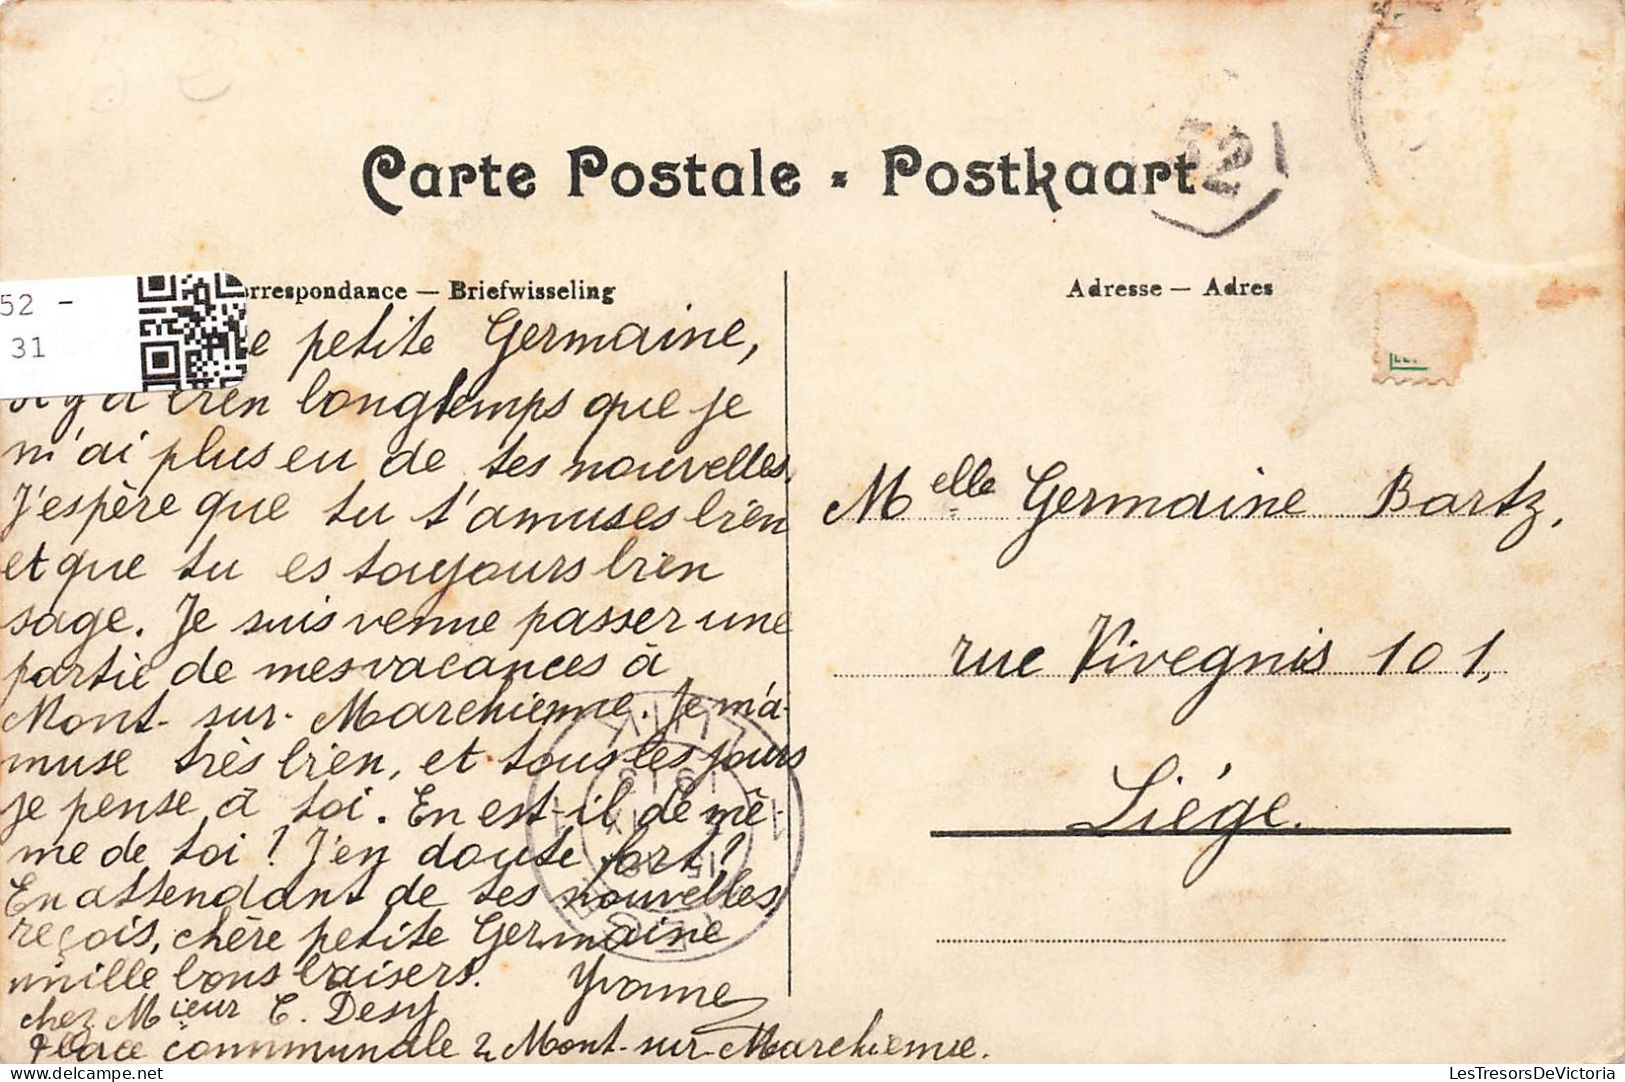 Carte Postale - Postkaart
52
Correspondance — Briefwisseling
Adresse — Adres
52 -
31
petite Germaine,
Il y a bien longtemps que je
n'ai plus eu de tes nouvelles.
J'espère que tu t'amuses bien
et que tu es toujours bien
sage. Je suis venue passer une
partie de mes vacances à
Mont-sur-Marchienne. Je m'a-
muse très bien, et tous les jours
je pense à toi. En est-il de mê-
me de toi ! J'en doute fort ?
En attendant de tes nouvelles
reçois, chère petite Germaine
mille bons baisers. Yvonne
chez Mieur E. Desy
Place communale 2 Mont-sur-Marchienne.
Melle Germaine Bartz,
rue Vivegnis 101,
Liége.
LesTresorsDeVictoria